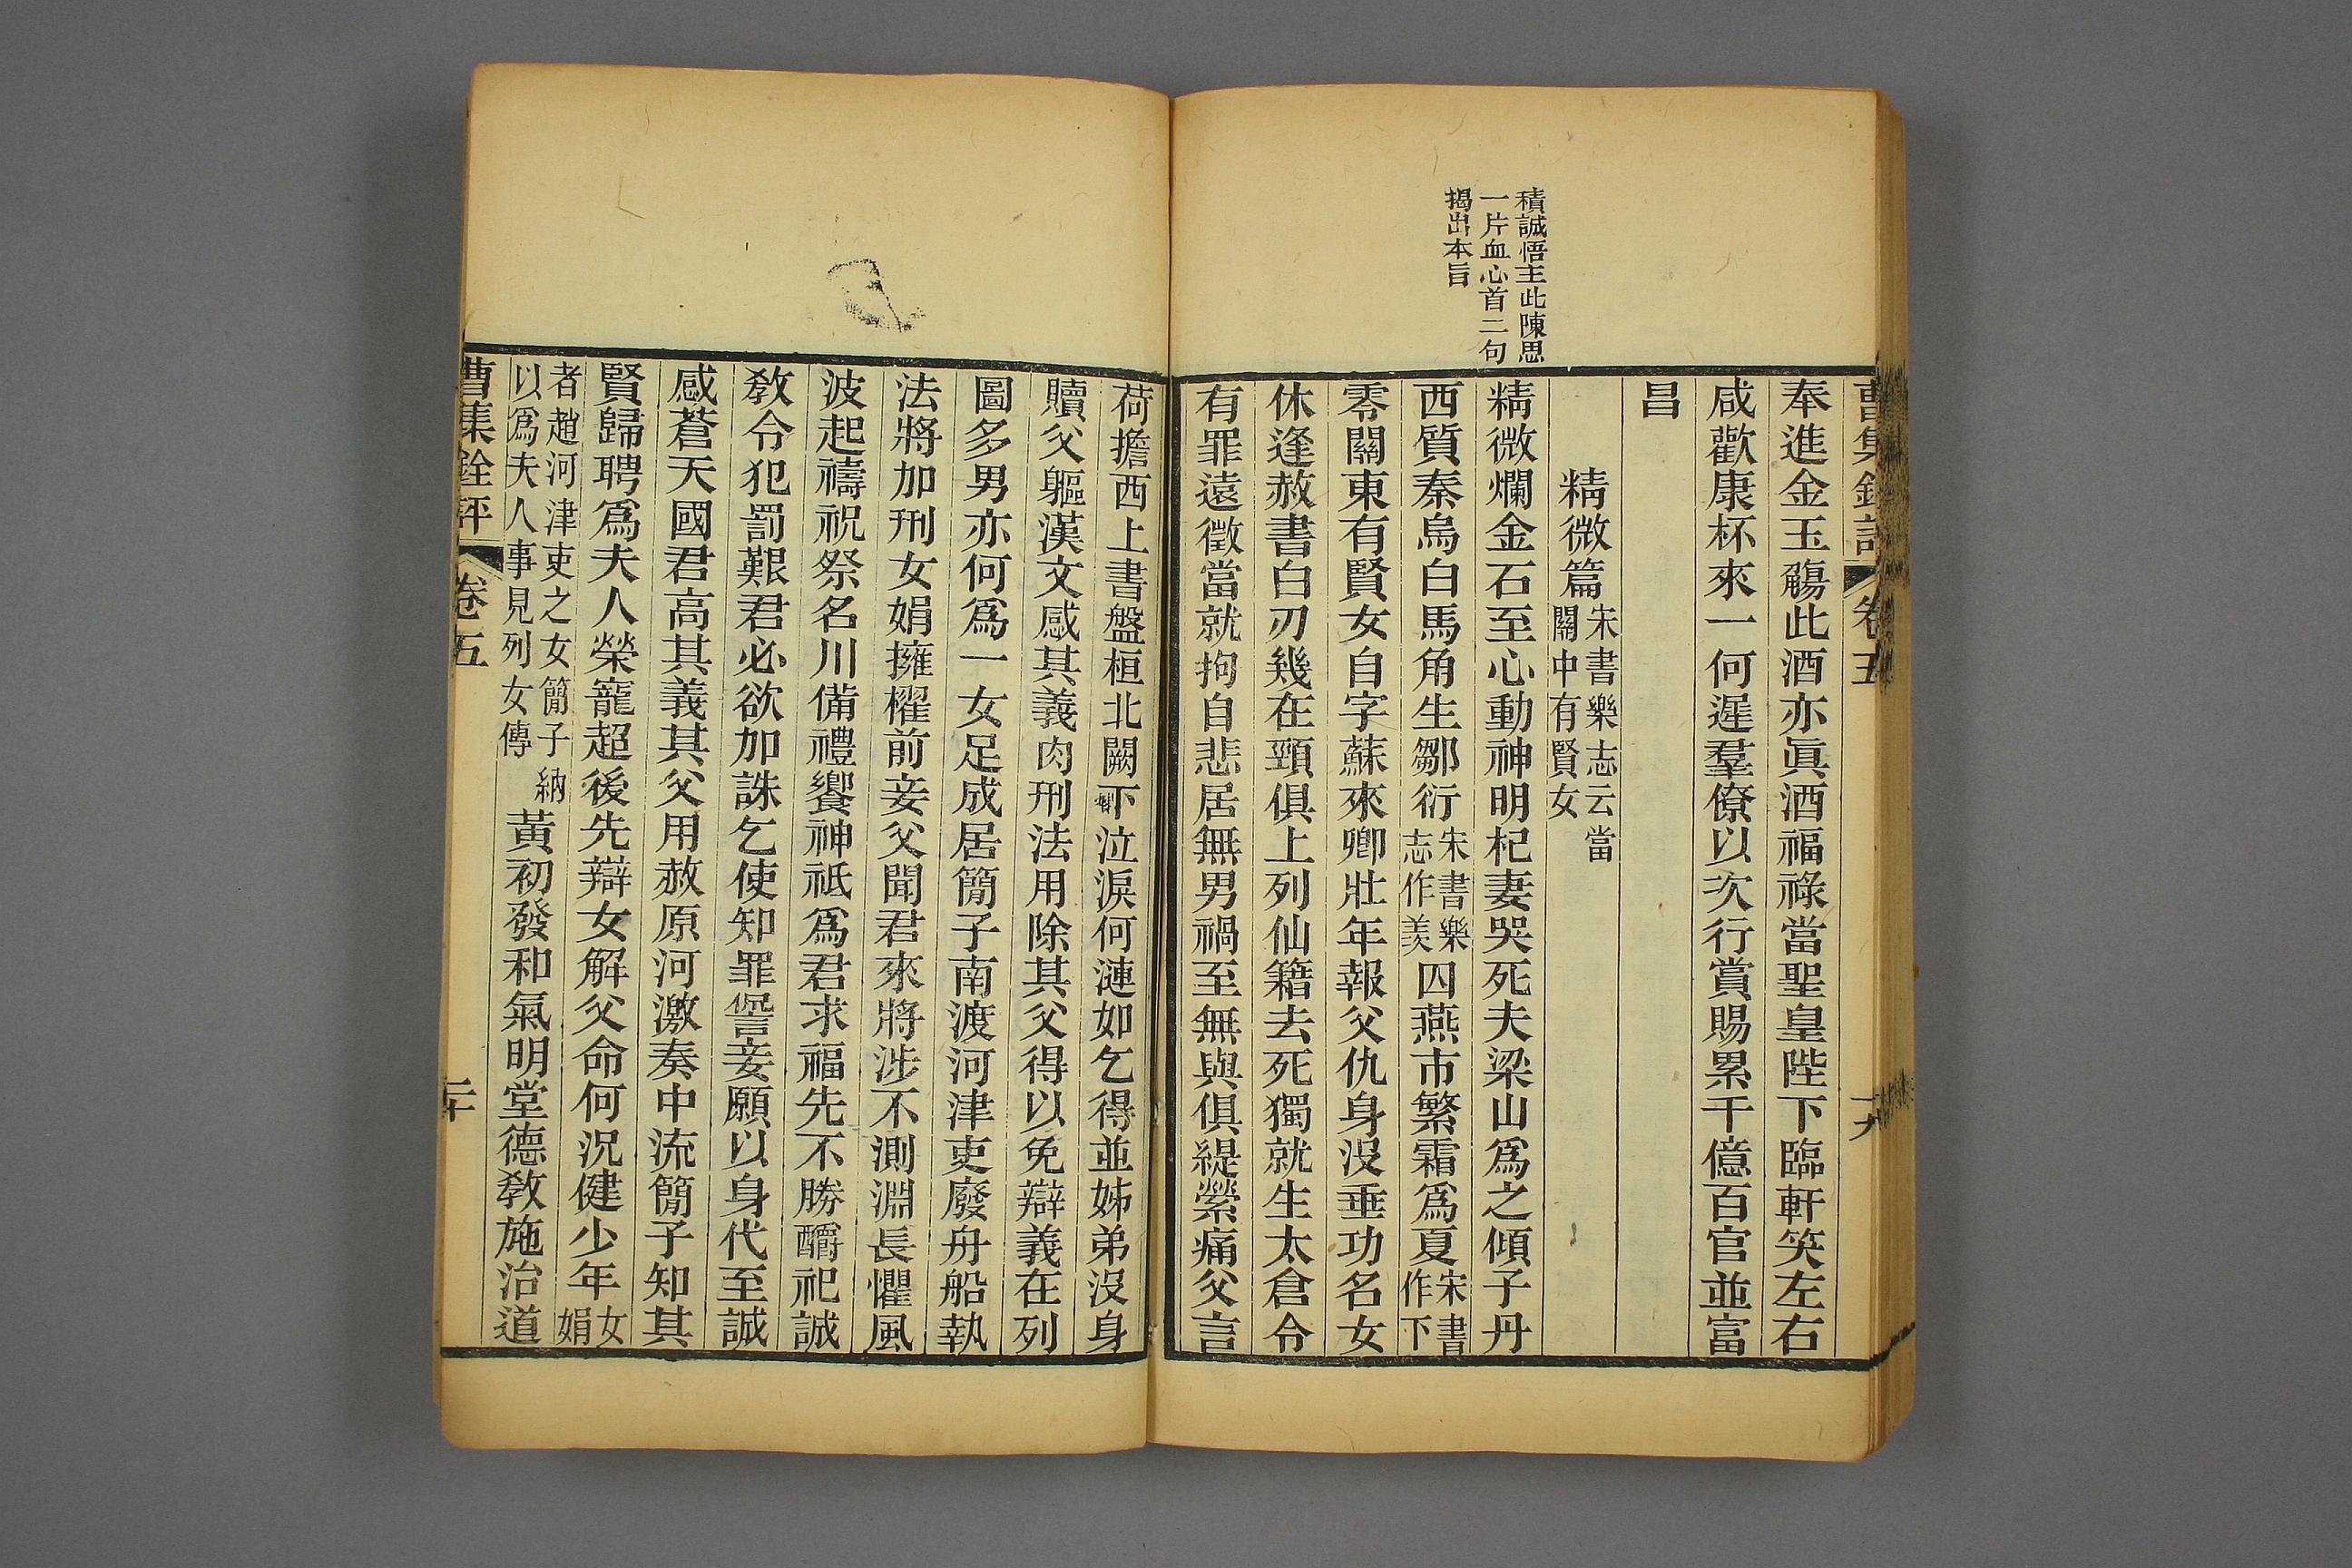 積誠悟主此陳思
一片血心首二句
揭出本旨
曹集銓評 卷五 十九
奉進金玉觴此酒亦眞酒福祿當聖皇陛下臨軒笑左右
咸歡康杯來一何遲羣僚以次行賞賜累千億百官並富
昌
精微篇宋書樂志云當
關中有賢女
精微爛金石至心動神明杞妻哭死夫梁山爲之傾子丹
西質秦烏白馬角生鄒衍宋書樂志作羨囚燕市繁霜爲夏宋書作下
零關東有賢女自字蘇來卿壯年報父仇身沒垂功名女
休逢赦書白刃幾在頸俱上列仙籍去死獨就生太倉令
有罪遠徵當就拘自悲居無男禍至無與俱緹縈痛父言
荷擔西上書盤桓北闕下泣淚何漣如乞得並姊弟沒身
贖父軀漢文感其義肉刑法用除其父得以免辯義在列
圖多男亦何爲一女足成居簡子南渡河津吏廢舟船執
法將加刑女娟擁櫂前妾父聞君來將涉不測淵長懼風
波起禱祝祭名川備禮饗神祇爲君求福先不勝釂祀誠
敎令犯罰艱君必欲加誅乞使知罪諐妾願以身代至誠
感蒼天國君高其義其父用赦原河激奏中流簡子知其
賢歸聘爲夫人榮寵超後先辯女解父命何況健少年女娟
者趙河津吏之女簡子納
以爲夫人事見列女傳
黃初發和氣明堂德敎施治道
曹集銓評 卷五 二十